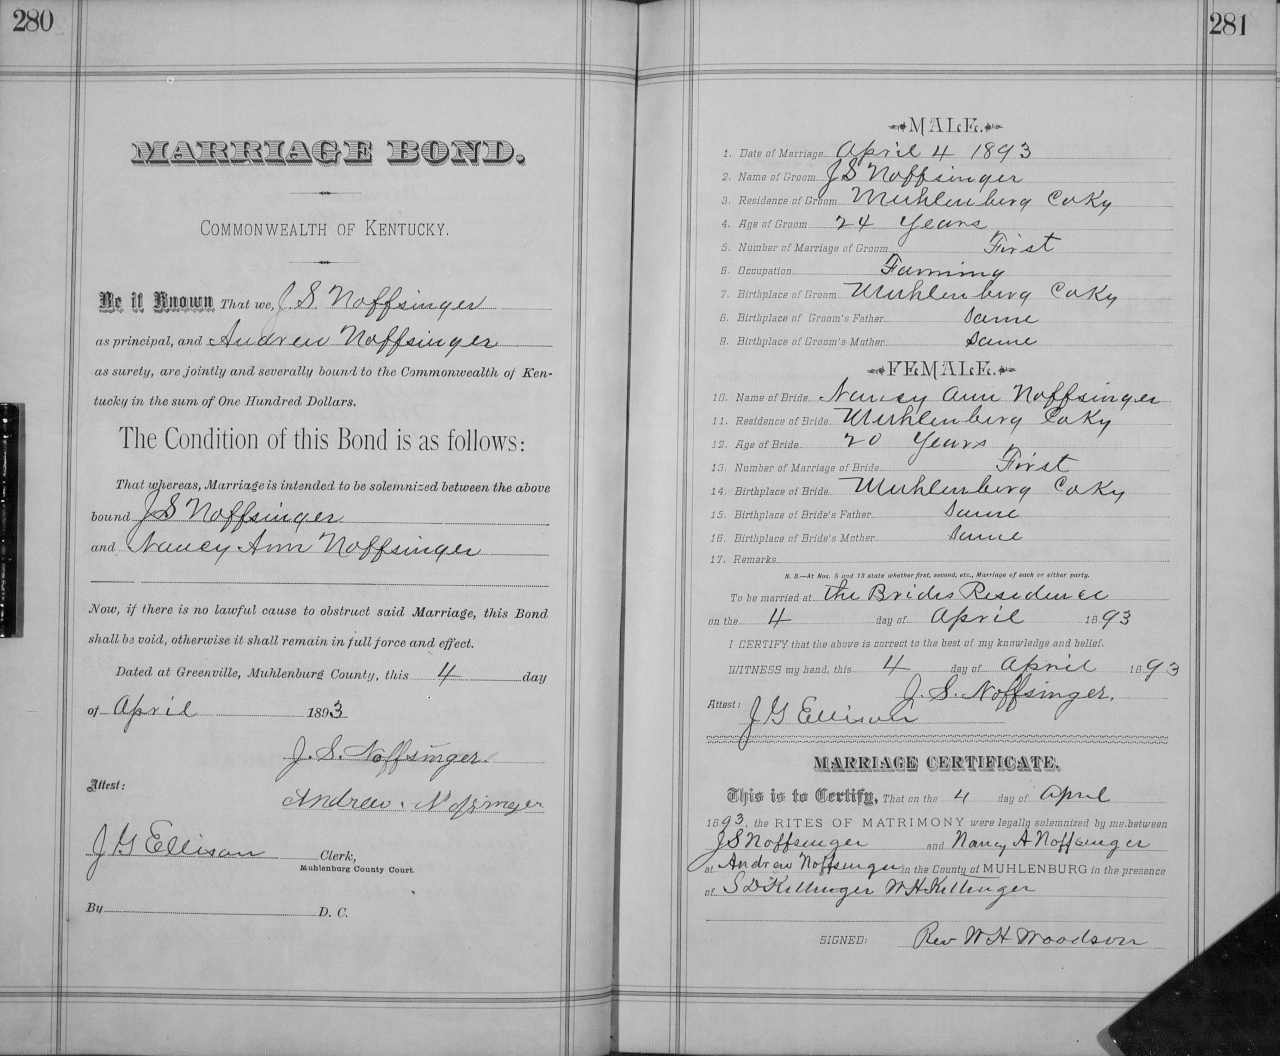 280
MARRIAGE BOND.
COMMONWEALTH OF KENTUCKY.
Be it Known That we, J. S. Noffsinger
as principal, and Andrew Noffsinger
as surety, are jointly and severally bound to the Commonwealth of Ken-
tucky in the sum of One Hundred Dollars.
The Condition of this Bond is as follows:
That whereas, Marriage is intended to be solemnized between the above
bound J S Noffsinger
and Nancy Ann Noffsinger
Now, if there is no lawful cause to obstruct said Marriage, this Bond
shall be void, otherwise it shall remain in full force and effect.
Dated at Greenville, Muhlenburg County, this 4 day
of April 1893
J. S. Noffsinger.
Attest:
Andrew Nofsinger
J G Ellison Clerk,
Muhlenburg County Court.
By D. C.
281
MALE.
1. Date of Marriage April 4 1893
2. Name of Groom J S Noffsinger
3. Residence of Groom Muhlenberg Co Ky
4. Age of Groom 24 Years
5. Number of Marriage of Groom First
6. Occupation Farming
7. Birthplace of Groom Muhlenberg Co Ky
8. Birthplace of Groom's Father Same
9. Birthplace of Groom's Mother Same
FEMALE.
10. Name of Bride Nancy Ann Noffsinger
11. Residence of Bride Muhlenberg Co Ky
12. Age of Bride 20 Years
13. Number of Marriage of Bride First
14. Birthplace of Bride Muhlenberg Co Ky
15. Birthplace of Bride's Father Same
16. Birthplace of Bride's Mother Same
17. Remarks
N. B.—At Nos. 5 and 13 state whether first, second, etc., Marriage of each or either party.
To be married at the Brides Residence
on the 4 day of April 1893
I CERTIFY that the above is correct to the best of my knowledge and belief.
WITNESS my hand, this 4 day of April 1893
J. S. Noffsinger.
Attest:
J G Ellison
MARRIAGE CERTIFICATE.
This is to Certify, That on the 4 day of April
1893, the RITES OF MATRIMONY were legally solemnized by me between
J S Noffsinger and Nancy A Noffsinger
at Andrew Noffsinger in the County of MUHLENBURG in the presence
of S D Killinger W H Killinger
SIGNED: Rev W H Woodson